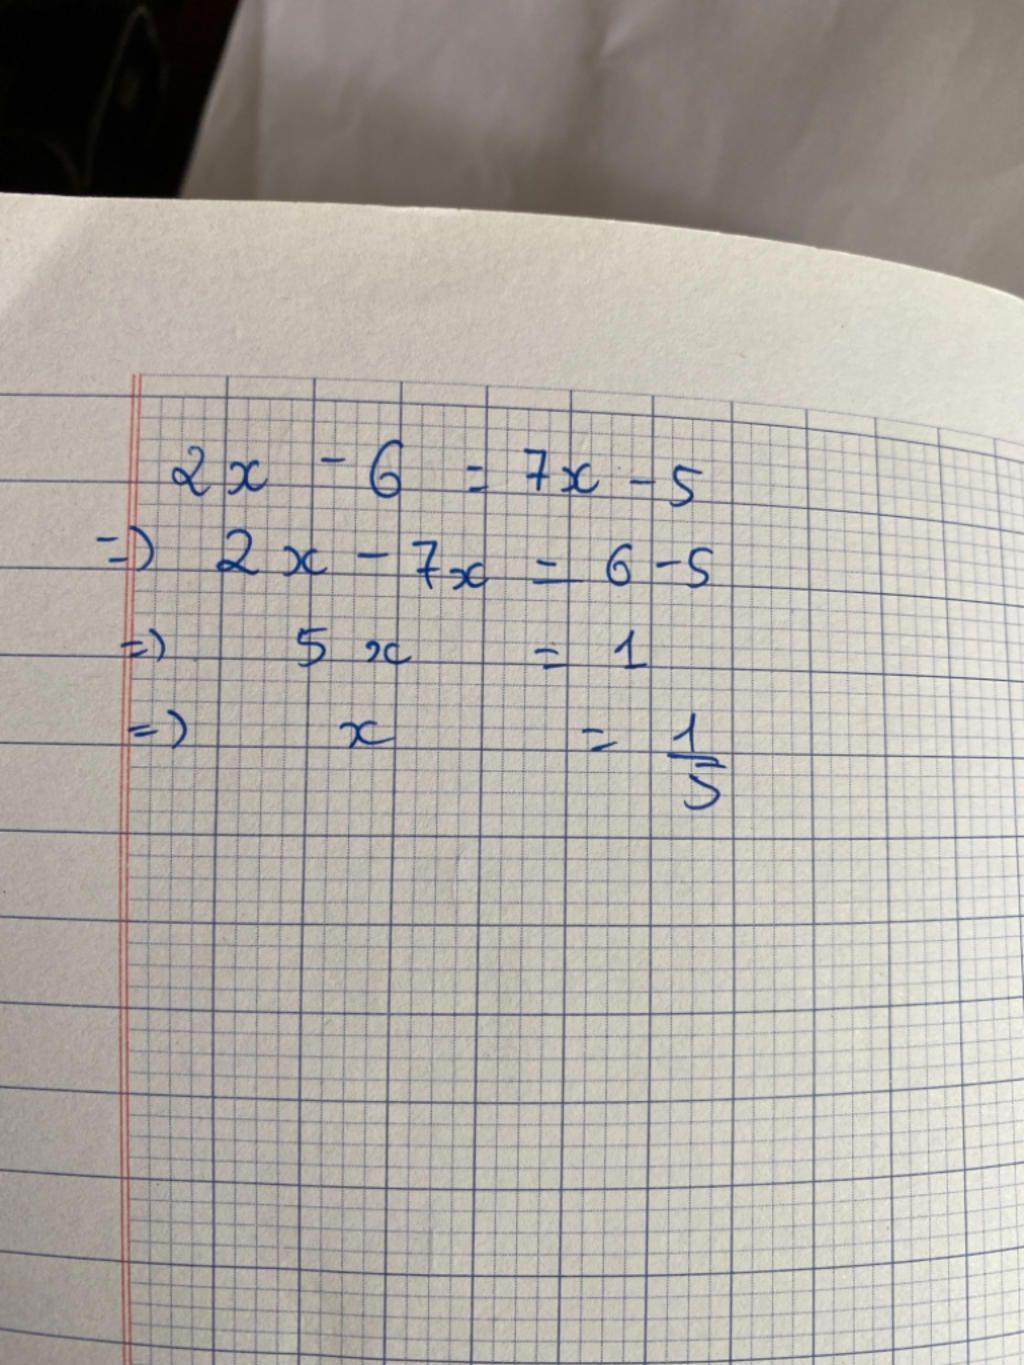 2x - 6 = 7x - 5
=) 2x - 7x = 6 - 5
=) 5x = 1
=) x = 1/5